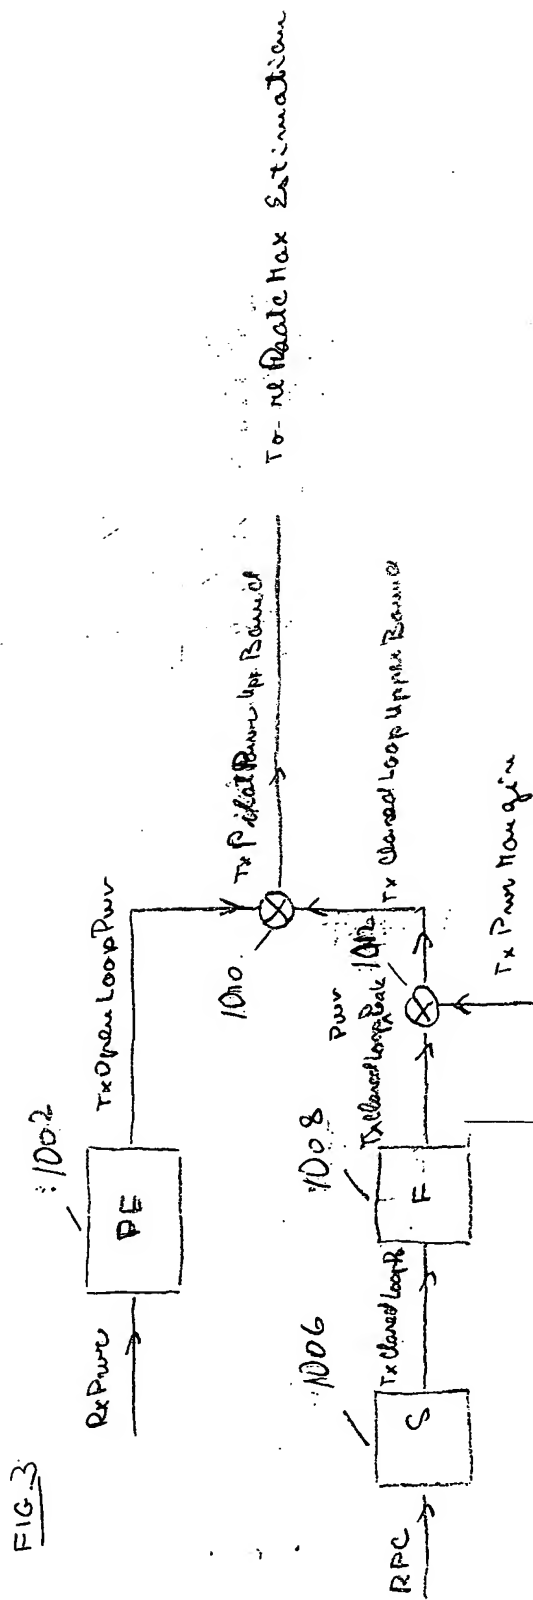 FIG 3
RxPwr
PF
1002
TxOpenLoopPwr
1010
TxPilotPowerUppBound
To
RateMax Estimation
RPC
S
1006
TxClosedLoop
F
1008
TxClosedLoopPeak
Pwr
1012
Tx ClosedLoopUpperBound
Tx Pwr Margin